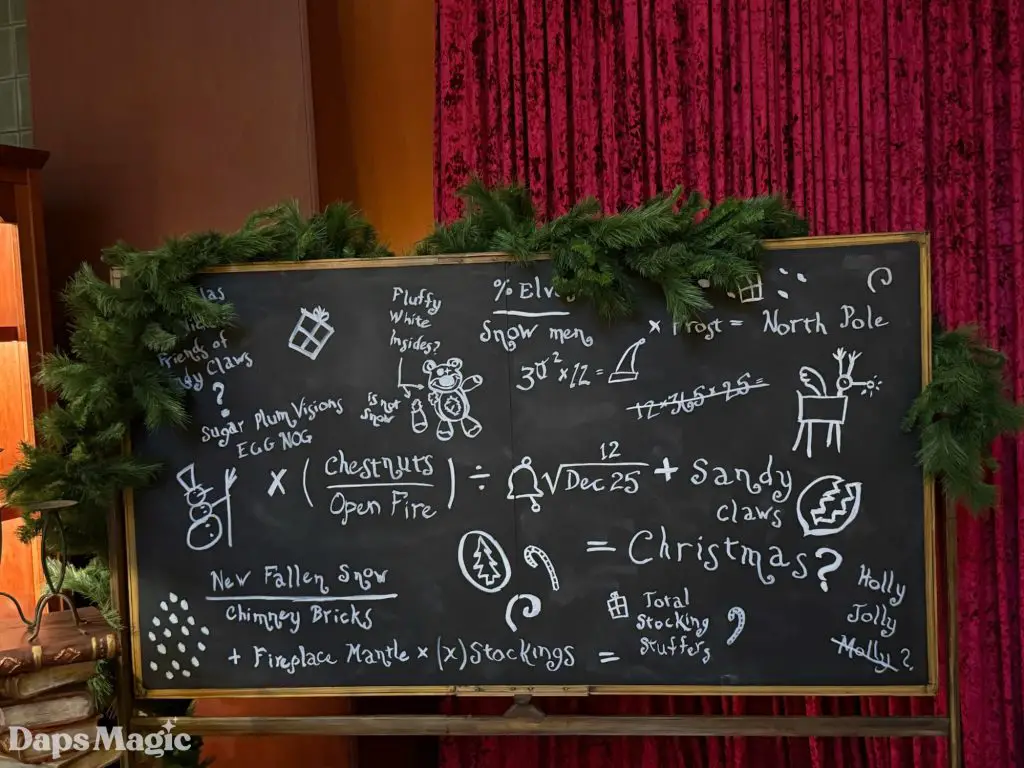 Friends of
Claws
?
Sugar Plum Visions
EGG NOG
Fluffy
White
Insides?
is not
snow
% Elv
Snow men
x Frost = North Pole
x12 =
12 x 365 x 25 =
x ( Chestnuts
Open Fire ) ÷ √ 12
Dec 25 + Sandy
Claws
= Christmas?
New Fallen Snow
Chimney Bricks
+ Fireplace Mantle x (x) Stockings =
Total
Stocking
Stuffers
Holly
Jolly
Molly?
DapsMagic